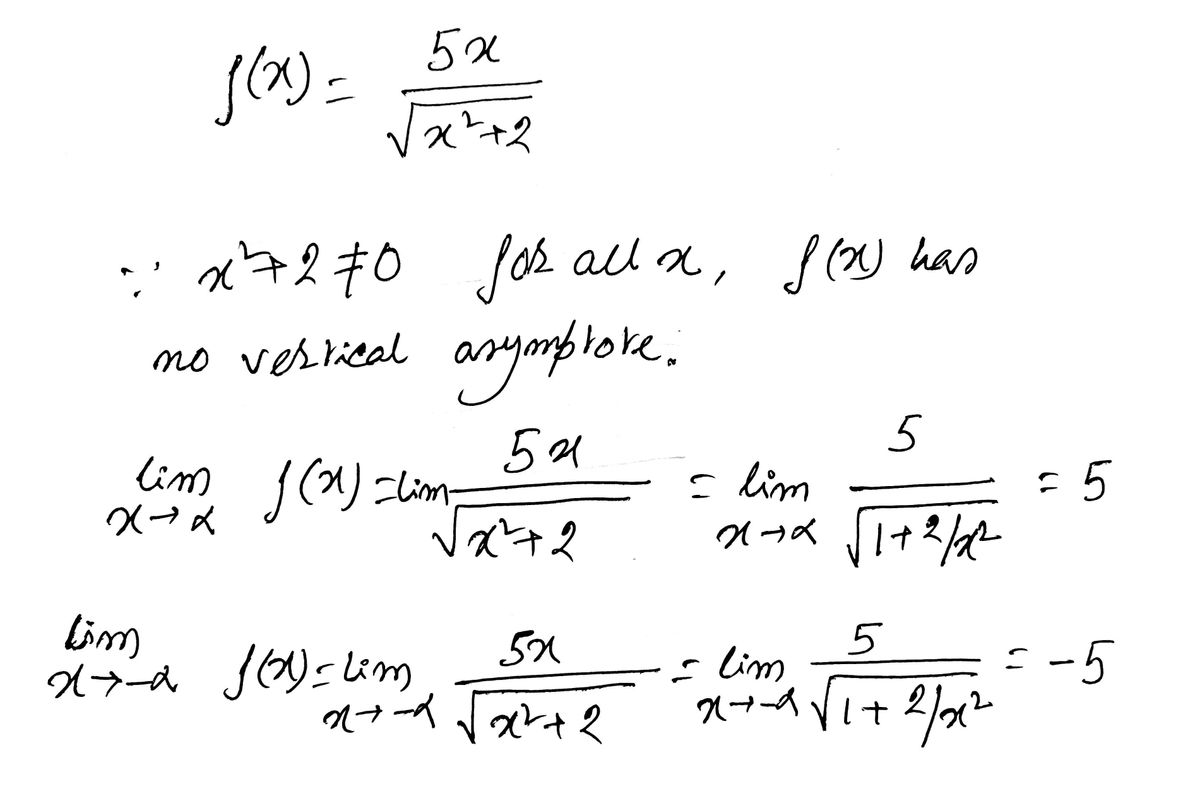 f(x) = 5x / √(x²+2)
∵ x²+2 ≠ 0 for all x, f(x) has
no vertical asymptote.
lim x→α f(x) = lim 5x / √(x²+2) = lim x→α 5 / √(1+2/x²) = 5
lim x→-α f(x) = lim x→-α 5x / √(x²+2) = lim x→-α 5 / √(1+2/x²) = -5